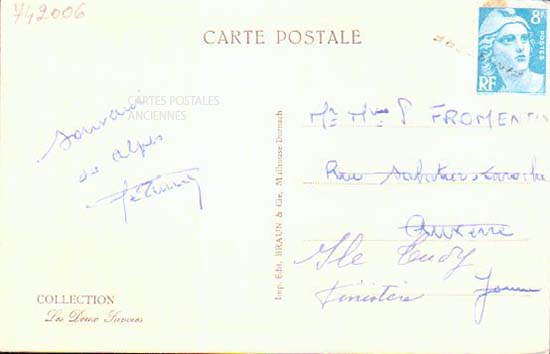 742006
CARTE POSTALE
8F
POSTES
RF
CARTES POSTALES
ANCIENNES
Souvenir
des alpes
Mr Mme P FROMENTIN
Rue
Auxerre
Ile Tudy
Yonne
Finistère
Imp. Edit. BRAUN & Cie, Mulhouse-Dornach
COLLECTION
Les Deux Savoies